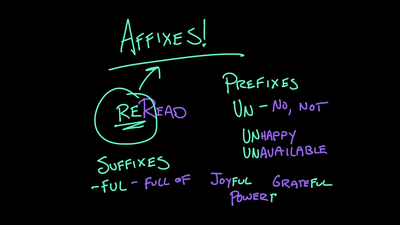 AFFIXES!
REREAD
PREFIXES
UN - NO, NOT
UNHAPPY
UNAVAILABLE
SUFFIXES
-FUL - FULL OF JOYFUL GRATEFUL
POWERF